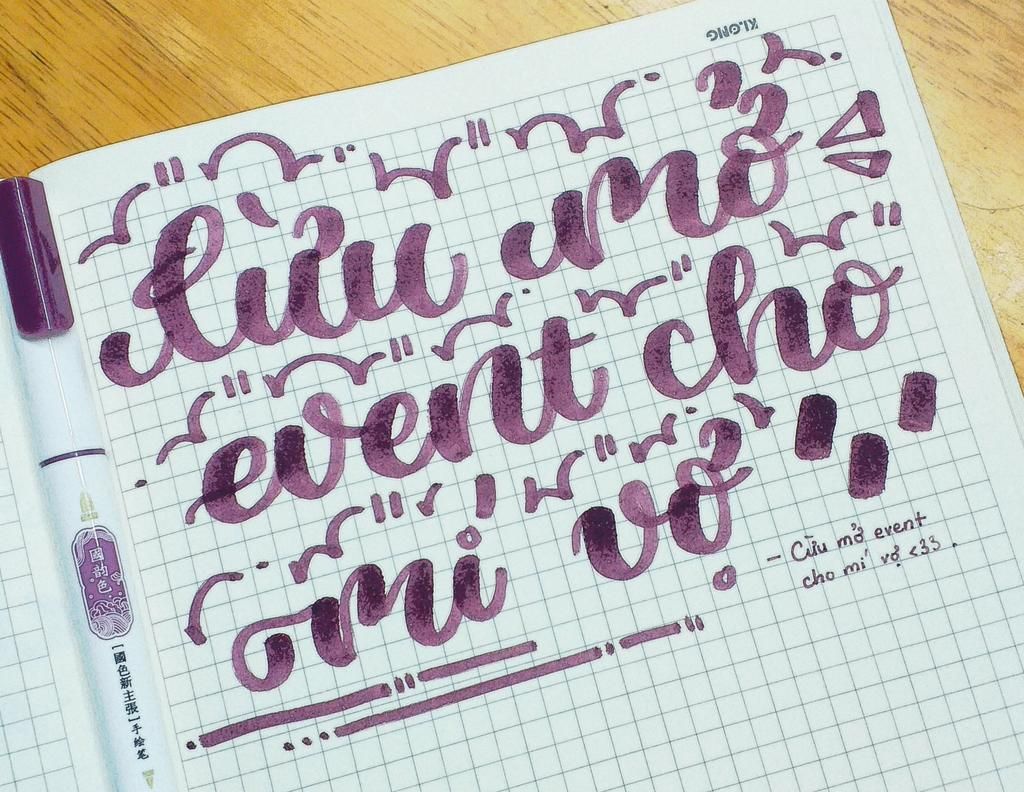 KLONG
Cừu mở
event cho
mí vợ
- Cừu mở event
cho mí vợ <33.
國韵色
[國色新主張]手绘笔